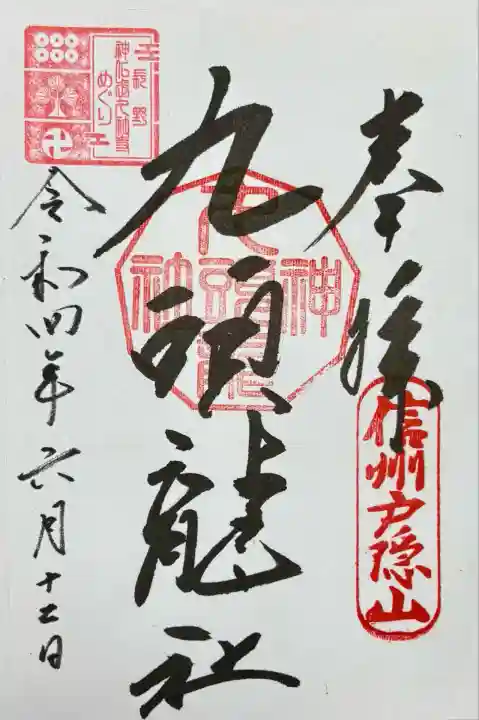 奉拝
信州戸隠山
九頭龍社
九頭龍神社
令和四年六月十七日
長野
めぐり